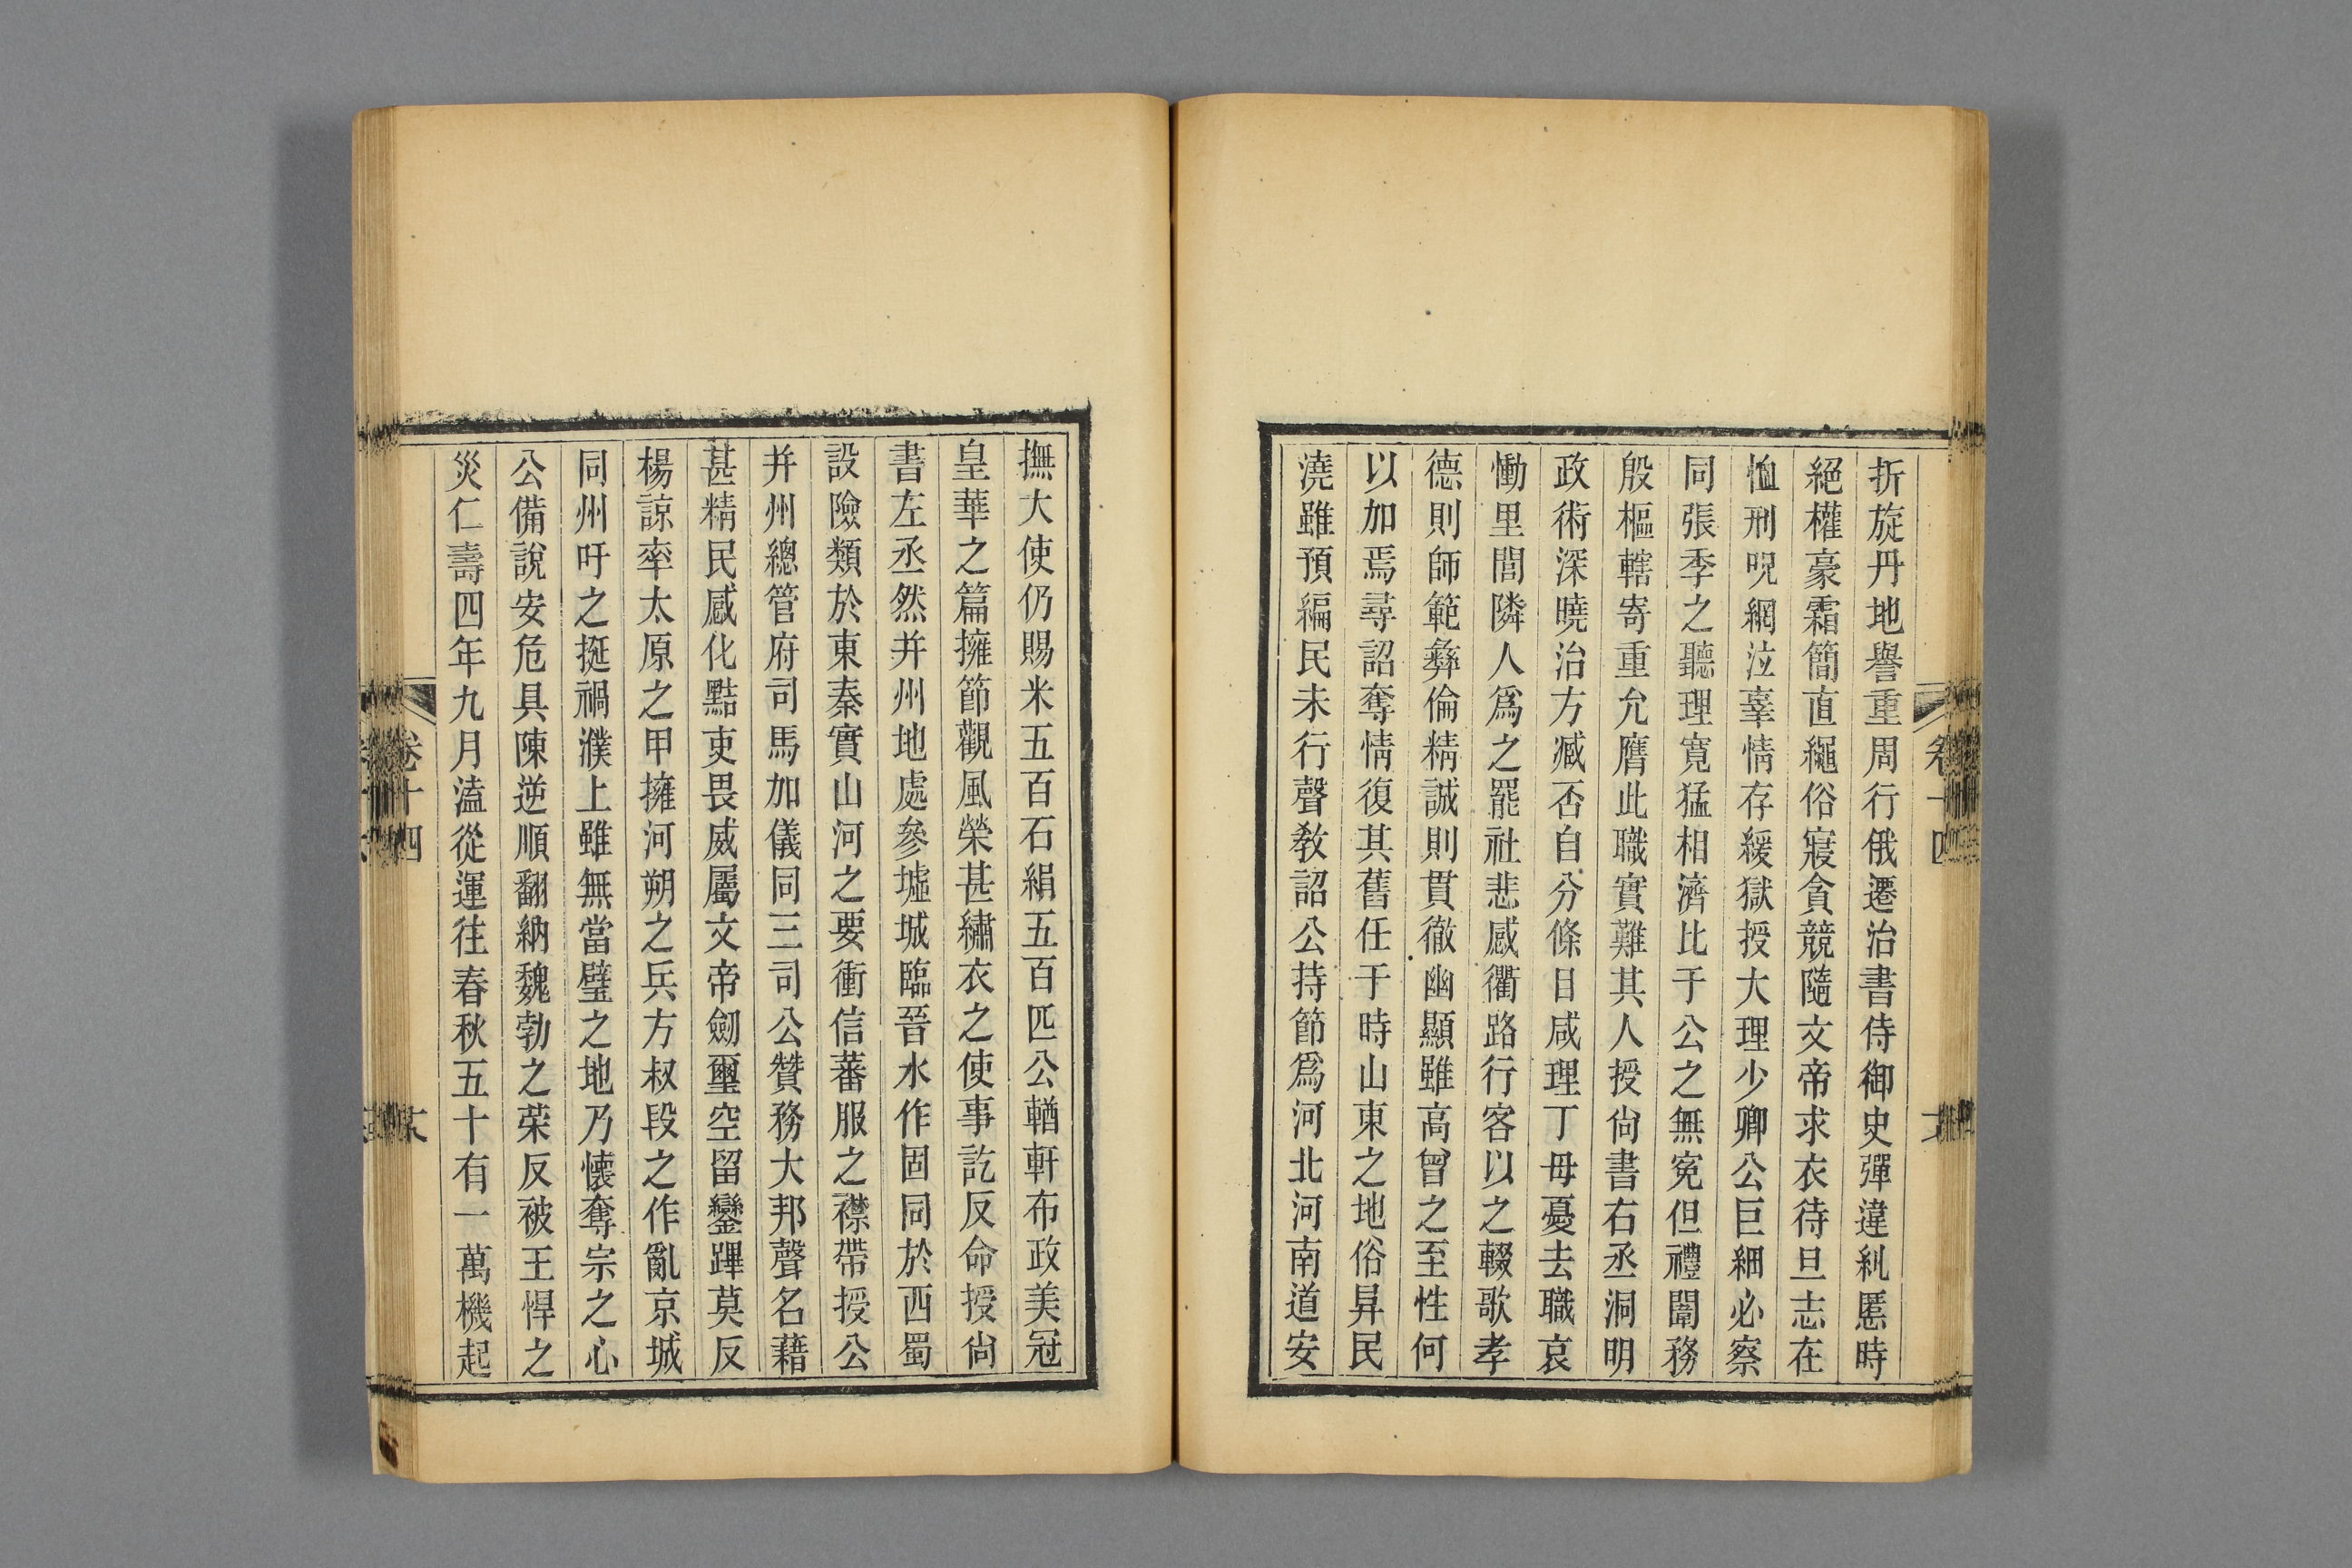 折旋丹地譽重周行俄遷治書侍御史彈違糺慝時
絕權豪霜簡直繩俗寢貪競隨文帝求衣待旦志在
恤刑呪網泣辜情存緩獄授大理少卿公巨細必察
同張季之聽理寬猛相濟比于公之無寃但禮闈務
殷樞轄寄重允膺此職實難其人授尙書右丞洞明
政術深曉治方臧否自分條目咸理丁母憂去職哀
慟里閭隣人爲之罷社悲感衢路行客以之輟歌孝
德則師範彝倫精誠則貫徹幽顯雖高曾之至性何
以加焉尋詔奪情復其舊任于時山東之地俗昇民
澆雖預編民未行聲敎詔公持節爲河北河南道安
撫大使仍賜米五百石絹五百匹公輶軒布政美冠
皇華之篇擁節觀風榮甚繡衣之使事訖反命授尙
書左丞然并州地處參墟城臨晉水作固同於西蜀
設險類於東秦實山河之要衝信蕃服之襟帶授公
并州總管府司馬加儀同三司公贊務大邦聲名藉
甚精民感化黠吏畏威屬文帝劒璽空留鑾蹕莫反
楊諒率太原之甲擁河朔之兵方叔段之作亂京城
同州吁之挻禍濮上雖無當璧之地乃懷奪宗之心
公備說安危具陳逆順翻納魏勃之荣反被王悍之
災仁壽四年九月溘從運往春秋五十有一萬機起
卷十四